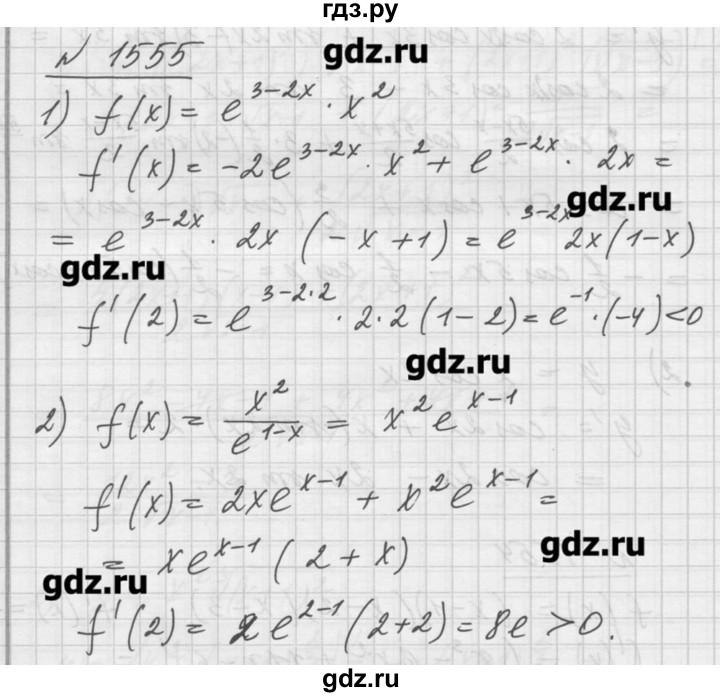 гдз.ру
№ 1555
gdz.ru
1) f(x) = e^{3-2x} · x^2
f'(x) = -2e^{3-2x} · x^2 + e^{3-2x} · 2x =
gdz.ru
= e^{3-2x} · 2x (-x+1) = e^{3-2x} 2x(1-x)
gdz.ru
f'(2) = e^{3-2·2} · 2·2(1-2) = e^{-1}·(-4)<0
gdz.ru
2) f(x) = x^2/e^{1-x} = x^2 e^{x-1}
f'(x) = 2xe^{x-1} + x^2 e^{x-1} =
gdz.ru
= xe^{x-1} (2+x)
gdz.ru
f'(2) = 2e^{2-1} (2+2) = 8e >0.
gdz.ru